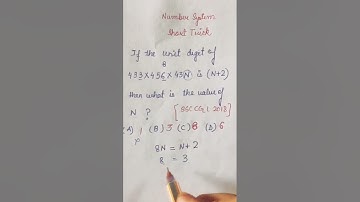 Number System
Short Trick
If the unit digit of
8
433 × 456 × 43N is (N+2)
then what is the value of
N ? [SSC CGL 2018]
(A) 1 (B) 3 (C) 8 (D) 6
8N = N+2
8 = 3